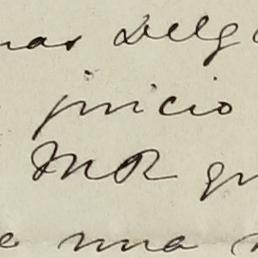 nas Delg
juicio
MR qu
e una